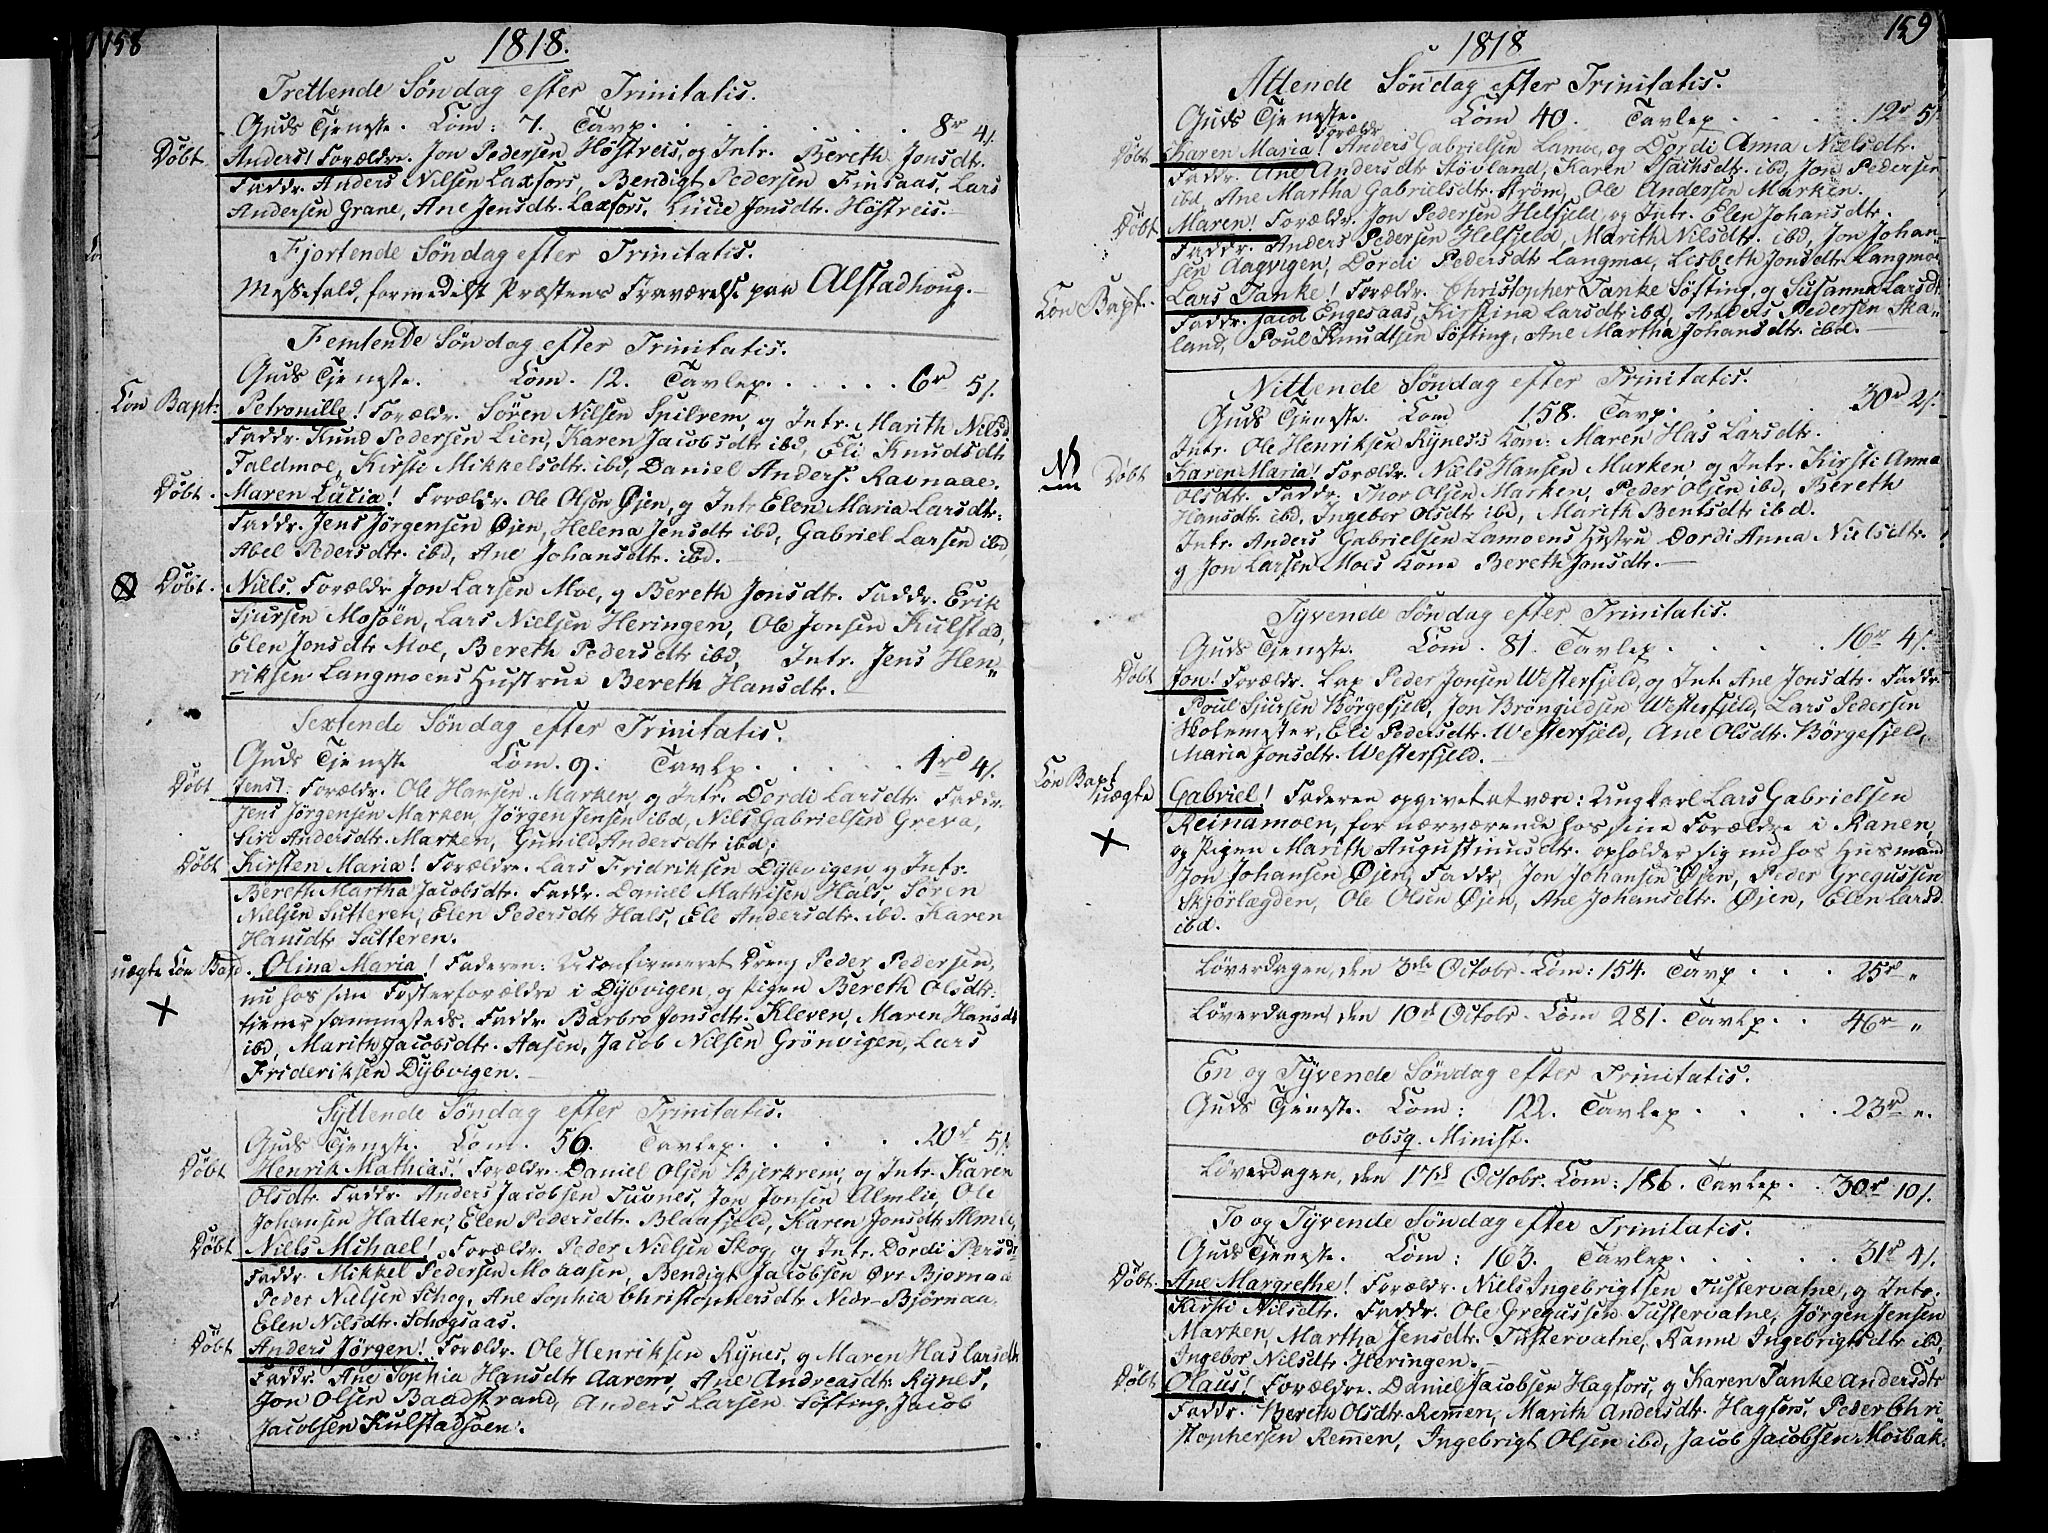 158
1818.
Trettende Søndag efter Trinitatis.
Guds Tjeneste. Com: 7. Tavp. 8r 4/.
Døbt. Anders! Forældre. Jon Pedersen Høstreis, og Intr. Bereth Jonsdt.
Faddr. Anders Nilsen Laxfors, Bendigt Pedersen Finsaas, Lars
Andersen Grane, Ane Jensdtr. Laxfors, Lucie Jonsdtr. Høstreis.
Fjortende Søndag efter Trinitatis.
Messefald, formedelst Præstens Fraværelse paa Alstadhoug.
Femtende Søndag efter Trinitatis.
Guds Tjeneste. Com. 12. Tavlep. 6r 5/.
Con Bapt: Petronille! Forældr. Søren Nilsen Spilrem, og Intr. Marith Nilsd
Faddr. Knud Pedersen Lien, Karen Jacobsdtr ibd, Eli Knudsdt
Faldmoe, Kirsti Mikkelsdtr. ibd, Daniel Anders. Ravnaae.
Døbt. Maren Lucia! Forældr. Ole Olsen Øjen, og Intr Elen Maria Larsdtr:
Faddr. Jens Jørgensen Øjen, Helena Jensdtr ibd, Gabriel Larsen ibd,
Abel Pedersdtr. ibd, Ane Johansdtr. ibd.
Døbt. Niels. Forældr Jon Larsen Moe, og Bereth Jonsdtr. Faddr. Erik
Sjursen Mosøen, Lars Nielsen Heringen, Ole Jonsen Kulstad,
Elen Jonsdtr Moe, Bereth Pedersdtr ibd, Intr. Jens Hen„
riksen Langmoens Hustrue Bereth Hansdtr.
Sextende Søndag efter Trinitatis.
Guds Tjeneste Com. 9. Tavlp. 4rd 4/.
Døbt Jens! Forældr. Ole Hansen Marken, og Intr. Dordi Larsdtr. Faddr.
Jens Jørgensen Marken, Jørgen Jensen ibd, Nils Gabrielsen Greva,
Siri Andersdtr. Marken, Gunild Andersdtr ibd.
Døbt Kirsten Maria! Forældre. Lars Fridriksen Dybvigen, og Intr.
Bereth Martha Jacobsdtr. Faddr. Daniel Mathisen Hals, Søren
Nielsen Sutteren, Elen Pedersdtr Hals, Ele Andersdtr. ibd. Karen
Hansdtr Sutteren.
uægte Con Bapt. Olina Maria! Faderen: Uconfirmeret Dreng Peder Pedersen,
nu hos sine Fosterforældre i Dybvigen, og Pigen Bereth Olsdtr:
tiener sammesteds. Faddr. Barbro Jonsdtr. Kleven, Maren Hansdt
ibd, Marith Jacobsdtr. Aasen, Jacob Nilsen Grønvigen, Lars
Frideriksen Dybvigen.
Syttende Søndag efter Trinitatis.
Guds Tjeneste. Com. 56. Tavlep. 20r 5/.
Døbt Henrik Mathias! Forældr. Daniel Olsen Skjerkrem, og Intr. Karen
Olsdtr. Faddr. Anders Jacobsen Tuvnes, Jon Jonsen Almlie, Ole
Johansen Hatten, Elen Pedersdtr. Blaafjeld, Karen Jonsdtr Almlie,
Døbt Niels Mihael! Forældr. Peder Nielsen Skog, og Intr. Dordi Persdr
Faddr. Mikkel Pedersen Moaasen, Bendigt Jacobsen Øvr Bjornaa
Peder Nielsen Schog, Ane Sophia Christophersdtr Nedr-Bjørnaa
Elen Nilsdtr. Schogsaas.
Døbt Anders Jørgen! Forældr. Ole Henriksen Rynes, og Maren Has Larsdtr
Faddr. Ane Sophia Hansdtr Aarem, Ane Andreasdtr. Rynes,
Jon Olsen Baadstrand, Anders Larsen Søfting, Jacob
Jacobsen Kulstadsøen.
159
1818
Attende Søndag efter Trinitatis.
Guds Tjeneste. Com 40. Tavlep. 12r 5/.
Døbt Karen Maria! Forældr Anders Gabrielsen Lamoe, og Dordi Anna Nielsdtr.
Faddr. Ane Andersdtr Støvland, Karen Isachsdtr. ibd, Jon Pedersen
ibd, Ane Martha Gabrielsdtr. Strøm, Ole Andersen Marken.
Døbt Maren! Forældr. Jon Pedersen Helfjeld, og Intr. Elen Johansdtr.
Faddr. Anders Pedersen Helfjeld, Marith Nilsdtr. ibd, Jon Johan„
sen Aagvigen, Dordi Pedersdtr Langmoe, Lisbeth Jonsdtr. Langmoe
Con Bapt. Lars Tanke! Forældr. Christopher Tanke Søfting, og Susanna Larsdt
Faddr. Jacob Engesaas, Kirstina Larsdtr ibd, Anders Pedersen Ska„
land, Poul Knudtsen Søfting, Ane Martha Johansdtr. ibd.
Nittende Søndag efter Trinitatis.
Guds Tjeneste. Com 158. Tavp. 30d 2/.
Intr. Ole Henriksen Rynes's Kone: Maren Has Larsdtr.
Døbt Karen Maria! Forældr. Niels Hansen Marken og Intr. Kirsti Anna
Olsdtr. Faddr. Thor Olsen Marken, Peder Olsen ibd, Bereth
Hansdtr ibd, Ingebor Olsdtr ibd, Marith Bentsdtr ibd.
Intr. Anders Gabrielsen Lamoens Hustru Dordi Anna Nielsdtr.
og Jon Larsen Moes Kone Bereth Jonsdtr.
Tyvende Søndag efter Trinitatis.
Guds Tjeneste. Com. 81. Tavlep. 16r 4/.
Døbt Jon! Forældr. Lap Peder Jonsen Westerfjeld, og Int. Ane Jonsdtr. Faddr.
Poul Sjursen Børgefjeld, Jon Brøngildsen Westerfjeld, Lars Pedersen
Skolemester, Eli Pedersdtr. Westerfjeld, Ane Olsdtr. Børgefjeld,
Maria Jonsdtr. Westerfjeld.
Con Bapt uægte Gabriel! Faderen opgivet at være: Ungkarl Lars Gabrielsen
Reinamoen, for nærværende hos sine Forældre i Ranen,
og Pigen Marith Augustinusdtr. opholder sig nu hos Husmand
Jon Johansen Øjen, Faddr. Jon Johansen Øjen, Peder Gregussen
Skjørlægden, Ole Olsen Øjen, Ane Johansdtr. Øjen, Elen Larsd.
ibd.
Løverdagen, den 3de Octobr. Com: 154. Tavp. 25r „
Løverdagen, den 10d Octobr. Com 281. Tavlp. 46r „
En og Tyvende Søndag efter Trinitatis.
Guds Tjeneste. Com: 122. Tavlep. 23r „.
obsq. Minist.
Løverdagen, den 17d Octobr. Com: 186. Tavlep. 30r 10/.
To og Tyvende Søndag efter Trinitatis.
Guds Tjeneste. Com: 163. Tavlep. 31r 4/.
Døbt. Ane Margrethe! Forældr. Niels Ingebrigtsen Tustervatne, og Intr.
Kirsti Nilsdtr. Faddr. Ole Gregussen Tustervatne, Jørgen Jensen
Marken, Martha Jensdtr. Tustervatne, Ranne Ingebrigtsdtr ibd,
Ingebor Nilsdtr. Heringen.
Døbt Olaus! Forældre. Daniel Jacobsen Hagfors, og Karen Tanke Andersdtr
Faddr. Bereth Olsdtr. Remen, Marith Andersdtr. Hagfors, Peder Chri
stophersen Remen, Ingebrigt Olsen ibd, Jacob Jacobsen Mosbak: